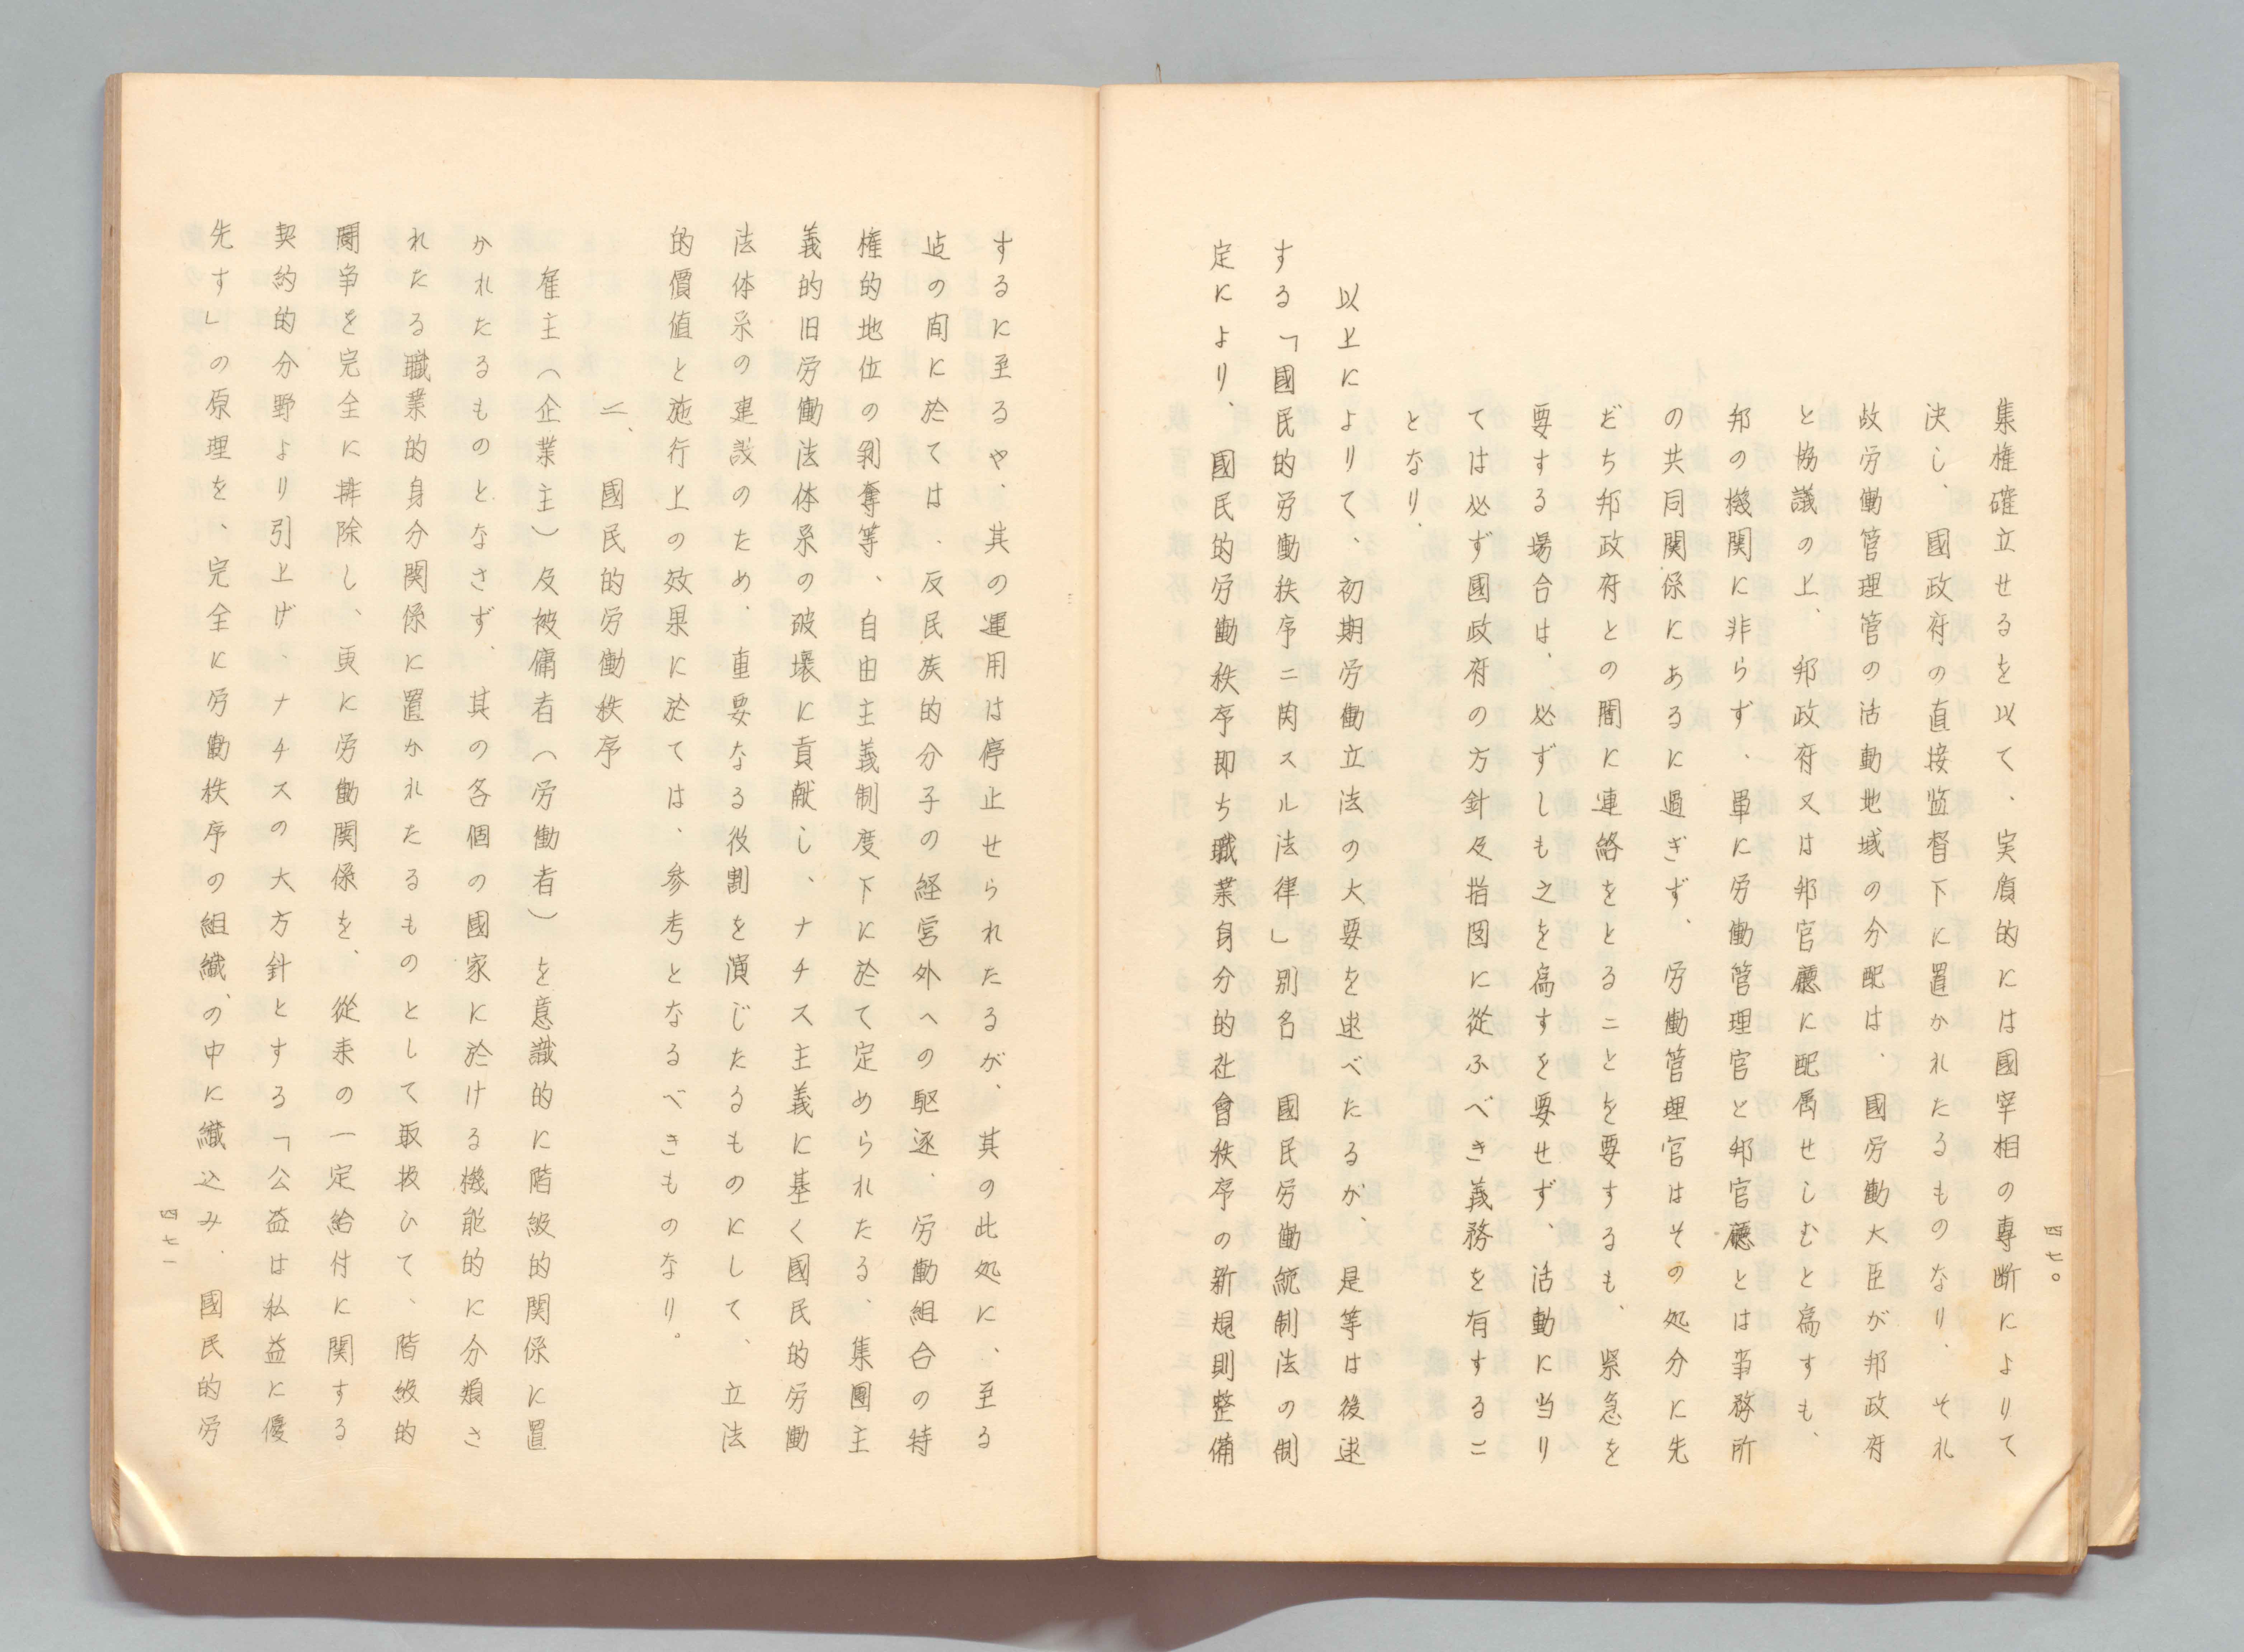 四七〇
集権確立せるを以て、実質的には國宰相の専断によりて
決し、國政府の直接监督下に置かれたるものなり、それ
故労働管理管の活動地域の分配は、國労働大臣が邦政府
と協議の上、邦政府又は邦官廳に配属せしむと為すも、
邦の機関に非らず、単に労働管理官と邦官廳とは事務所
の共同関係にあるに過ぎず、労働管理官はその処分に先
だち邦政府との間に連絡をとることを要するも、緊急を
要する場合は、必ずしも之を為すを要せず、活動に当り
ては必ず國政府の方針及指図に從ふべき義務を有するこ
となり、
以上によりて、初期労働立法の大要を述べたるが、是等は後述
する「國民的労働秩序ニ関スル法律」別名　國民労働統制法の制
定により、國民的労働秩序即ち職業身分的社會秩序の新規則整備
するに至るや、其の運用は停止せられたるが、其の此処に、至る
迄の間に於ては、反民族的分子の経営外への駆逐、労働組合の特
権的地位の剝奪等、自由主義制度下に於て定められたる、集團主
義的旧労働法体系の破壊に貢献し、ナチス主義に基く國民的労働
法体系の建設のため、重要なる役割を演じたるものにして、立法
的價値と施行上の效果に於ては、参考となるべきものなり。
二、國民的労働秩序
雇主（企業主）及被傭者（労働者）を意識的に階級的関係に置
かれたるものとなさず、其の各個の國家に於ける機能的に分類さ
れたる職業的身分関係に置かれたるものとして取扱ひて、階級的
闘争を完全に排除し、更に労働関係を、從来の一定給付に関する
契約的分野より引上げ、ナチスの大方針とする「公益は私益に優
先す」の原理を、完全に労働秩序の組織、の中に織込み、國民的労
四七一